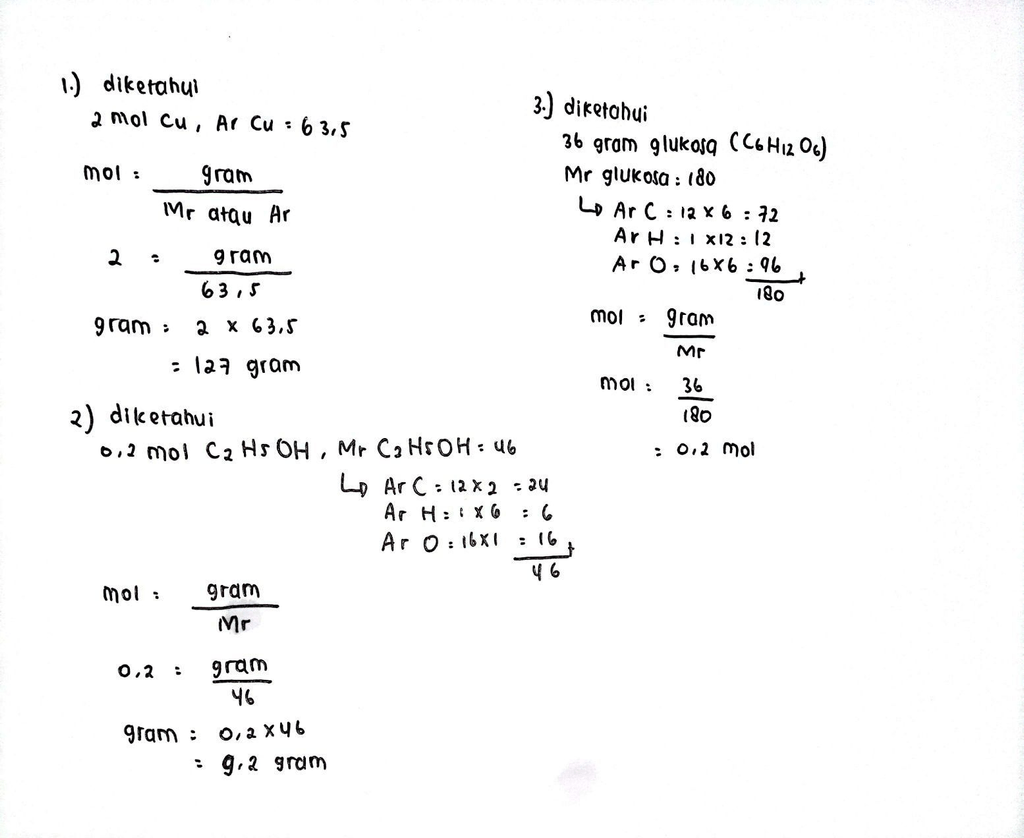 1.) diketahui
2 mol Cu, Ar Cu = 63,5
mol = gram
Mr atau Ar
2 = gram
63,5
gram = 2 x 63,5
= 127 gram
2) diketahui
0,2 mol C2H5OH, Mr C2H5OH = 46
↳ Ar C = 12 x 2 = 24
Ar H = 1 x 6 = 6
Ar O = 16 x 1 = 16 +
46
mol = gram
Mr
0,2 = gram
46
gram = 0,2 x 46
= 9,2 gram
3.) diketahui
36 gram glukosa (C6H12O6)
Mr glukosa = 180
↳ Ar C = 12 x 6 = 72
Ar H = 1 x 12 = 12
Ar O = 16 x 6 = 96 +
180
mol = gram
Mr
mol = 36
180
= 0,2 mol